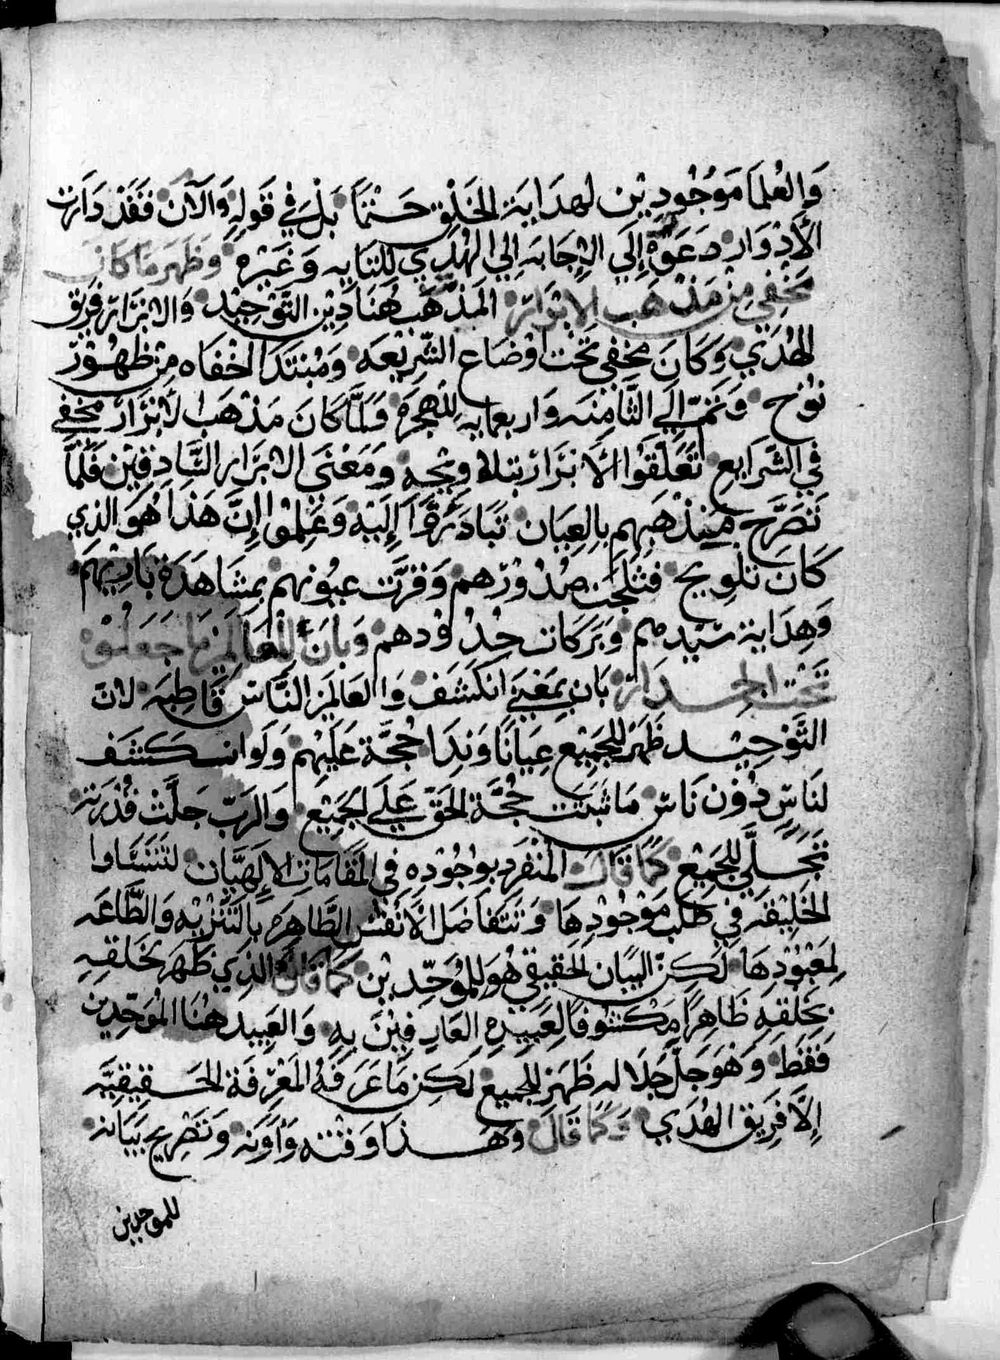 وَالعُلمَا مَوْجُودِيْن لهِدَايَة الخَلق حَتْمًا بَلْ في قَولِهِ وَالآن فَقَدْ دَارَت
الأَدْوَار دَعَوَة إلَي الاِجَابه إلي الهُدَي لِلنَايِه وَغَيْره وَظَهَر مَا كان
مَخفِي مِن مَذْهَب الابْرَار المَذْهَب هُنَا دِيْن التَّوْحِيْد وَالابْرَار فَرِيق
الهُدَي وَكَانَ مخفي تحْت اوْضَاع الشَّرِيْعَه وَمُبْتَدَا اخْفَاه مِن ظهُوْر
نُوْح وَتَمّ إلَي الثَّامِنَه وَاربعمايه لِلهجرَه وَلمَّا كَانَ مَذْهَب الابْرَار مخفي
في الشَرَايع تَعَلَقُوا الأَبْرَار بتلاويحه وَمَعْنَي الابْرَار الصَّادِقِيْن فلَمَّا
تَصَرَّح مَذْهَبهم بِالعِيَان تَبَادَرُوا إلَيْهِ وَعَلِمُوا إنَّ هَذَا هُوَ الذي
كَانَ تَلوِيح فَثلجَت صُدُوْرُهم وَقرَّت عيُونهم بمشَاهَدَة بَارِيْهم
وَهِدَايَة سَيّدهم وَبَرَكَات حُدُوْدهم وَبَانَ لِلْعَالَمِيْن مَا جَعَلُوْهُ
تَحْت الجِدَار بَان بمَعْنَي انكَشَف وَالعَالَمِيْن النَّاسَ قَاطِبَه لانّ
التَّوْحِيْد ظَهَر للجَمِيْع عيَانًا وَنِدَا حُجَّة عَلَيْهم وَلَوا نسكَشَف
لنَاسٍ دُوْن نَاسٍ مَا ثبَتَت حُجَّة الحَق عَلَي الجَمِيْع وَالرَبّ جَلَّتْ قُدْرَته
تَجَلَّي للجَمِيْع كَمَا قَالَ المنْفَرِد بوجُوْدِه في المَقَامَات الإلَهيَّات لتَتَسَاوا
الخَلِيْقَه في طَلَب مَوْجُوْدِهَا وَتتفَاضَل الأنْفُس الطَّاهِرَه بالتَنْزِيْه وَالطَّاعَه
لِمَعْبُوْدِهَا لَكِن البَيَان الحَقِيْقي هُوَ للمُوَحِّدِيْن كَمَا قَالَ الذِي ظَهَر لخَلقِهِ
بخَلقِهِ ظَاهِرًا مَكْشُوفًا لعَبِيْدِهِ العَارِفِيْن بِهِ وَالعَبِيْد هُنَا المُوَحِّدِيْن
فَقَط وَهُوَ جَلَّ جَلَاله ظَهَرَ للجَمِيع لَكِن مَا عَرَفَهُ المَعْرِفَة الحَقِيْقِيَّه
إلَّا فَرِيق الهُدَي وَكَمَا قَالَ وَهَذا وَقْته وَأوَنَه وَتَصْرِيح بَيَانه
للموحدين